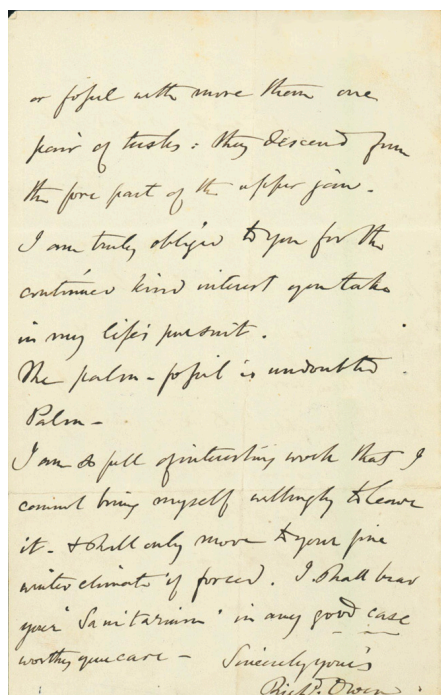 or fossil with more than one
pair of tusks: they descend from
the fore part of the upper jaw.
I am truly obliged to you for the
continued kind interest you take
in my life's pursuit.
The palm-fossil is undoubted
Palm-
I am so full of interesting work that I
cannot bring myself willingly to leave
it. & shall only move to your fine
winter climate if forced. I shall bear
your "Sanitarium" in any good case
worthy your care - Sincerely yours
Richd. Owen